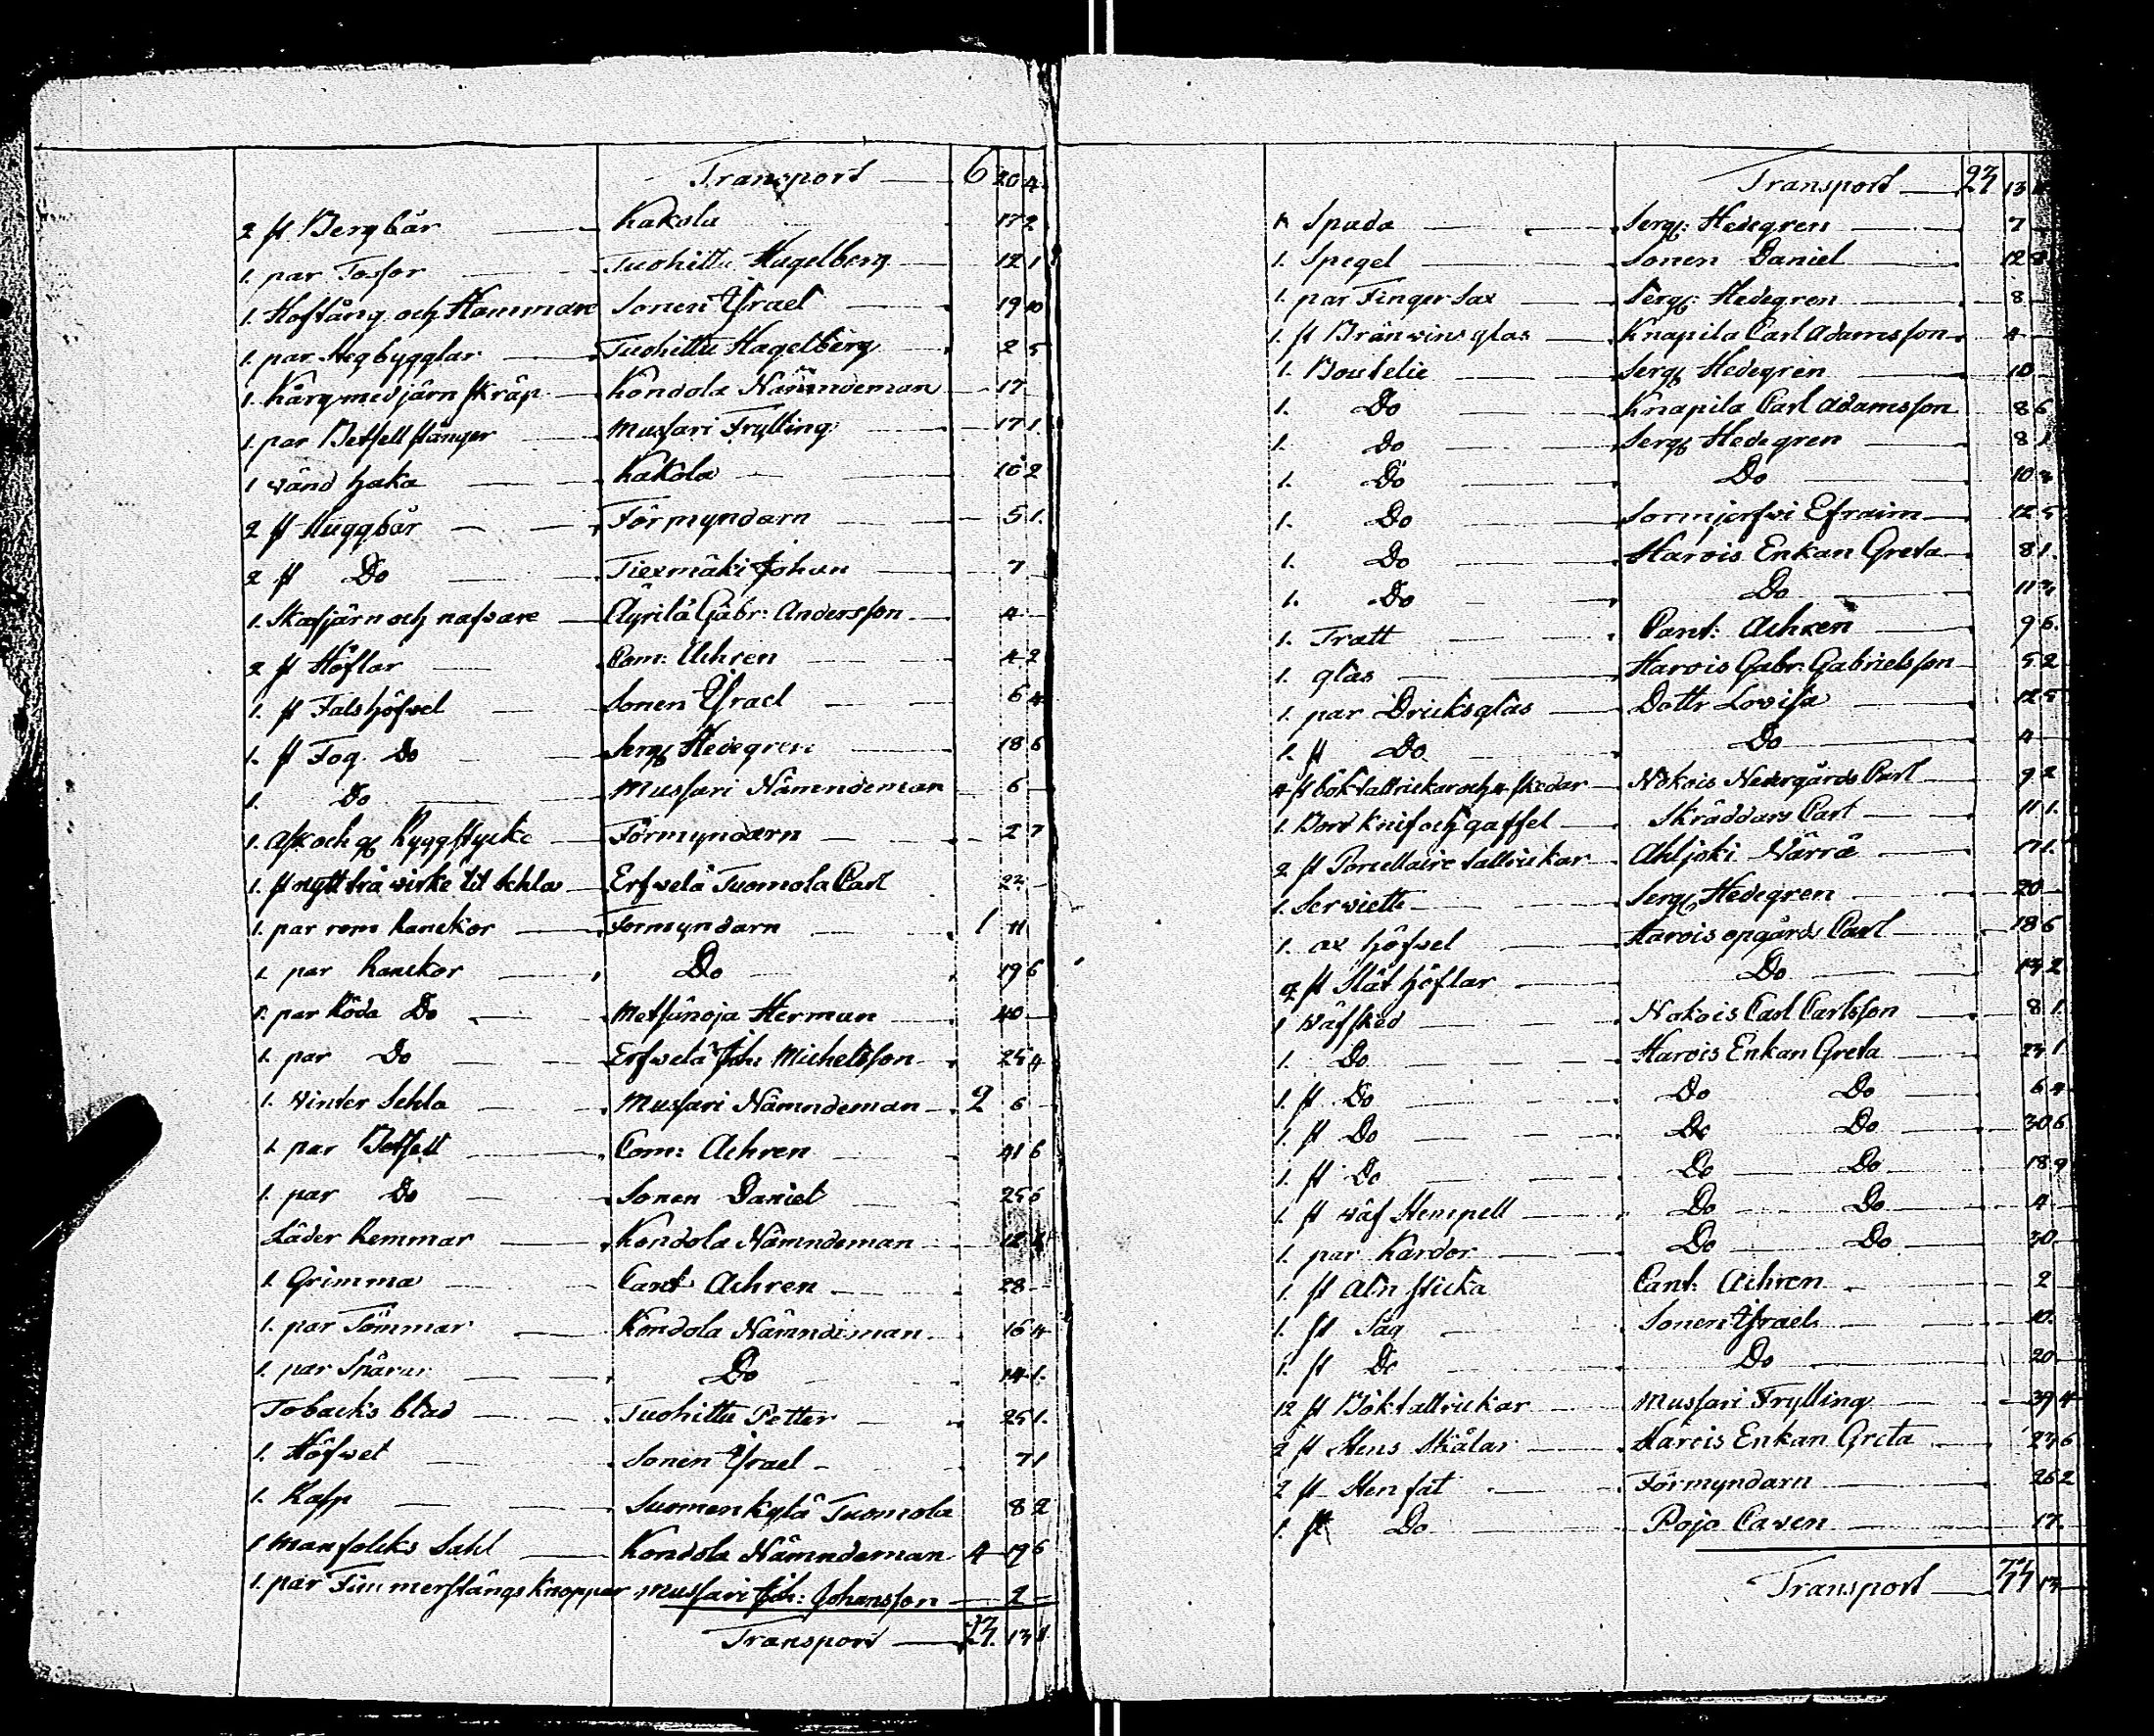 Transport 6 20 4
2 st Bergbår Kakola 17 2
1. par Tosfor Tuohittu Hagelberg 12 1
1. Hoftång och Hammare Sonen Israel 19 10
1. par Stegbygglar Tuohittu Hagelberg 2 5
1. Kårg med järn skråp Kondola Nämndeman 17
1. par Betsell stånger Mussari Frylling 17 1.
1 vänd haka Kakola 10 2
2 st Huggbår Förmyndarn 5 1.
2 st Do Tiexmäki Johan 7
1. Skafjärn och nafvare Äyrilä Gabr: Andersson 4
2 st Höflar Com: Achren 4 2
1. st Falshöfvel Sonen Israel 6 4
1. st Fog Do Serg Hedegren 18 6
1. Do Mussari Nämndeman 6
1. Ask och g Ryggstycke Förmyndarn 2 7
1. st nytt trä virke til Sehlar Erfvelä Tuomola Carl 22
1. par rem hanskor Förmyndarn 1 11
1 par hanskor Do 19 6
1. par Röda Do Metsänoja Herman 40
1. par Do Erfvelä Joh: Michelsson 25 4
1. Vinter Sehla Mussari Nämndeman 2 6
1. par Betsell Com: Achren 41 6
1. par Do Sonen Daniel 25 6
Läder Remmar Kondola Nämndeman 12 4
1. Grimma Cant Achren 28
1. par Tömmar Kondola Nämndeman 16 4
1. par Snärar Do 14 1.
Tobacks blad Tuohittu Petter 25 1.
1. Höfvel Sonen Israel 7 1
1. Rasp Suomenkylä Tuomola 8 2
1 Manfolcks Sahl Kondola Nämndeman 4 19 6
1. par Fimmerstångs Knoppar Mussari Joh: Johansson 2
Transport 23. 13 1
Transport 23 13 1
1 Spada Serg: Hedegren 7
1. Spegel Sonen Daniel 12 8
1. par Finger Sax Serg: Hedegren 8
1. st Bränvins glas Knapila Carl Adamsson 4
1. Boutelie Serg Hedegren 10
1. Do Knapila Carl Adamsson 8 6
1. Do Serg Hedegren 8 1
1. Do Do 10 4
1. Do Sormjerfvi Efraim 12 5
1. Do Harois Enkan Greta 8 1.
1. Do Do 11 3
1. Tratt Cant: Achren 9 6.
1. glas Harois Gabr: Gabrielsson 5 2
1. par Dricksglas Dottr Lovisa 12 5
1. st Do Do 4
4 st böktallrickar och 4 skedar Nokois Nedergårds Carl 9 2
1. Bord Knif och gaffel Skräddars Carl 11 1.
2 st Porcellaire tallrickar Ahljoki Närrä 17 1.
1. Serviette Serg Hedegren 20
1. ax höfvel Harois opgårds Carl 18 6
2 st Slät höflar Do 13 2
1 Väfsked Nokois Carl Carlsson 8 1.
1. Do Harois Enkan Greta 23 1
1. st Do Do Do 6 4
1. st Do Do Do 30 6
1. st Do Do Do 18 9
1. st väf Stempell Do Do 4
1. par Kardor Do Do 30
1. st Aln sticka Cant: Achren 2
1. st Såg Sonen Israel 10.
1. st Do Do 20
12 st Böktallrickar Mussari Frylling 39 4
2 st Stens Skålar Harois Enkan Greta 23 6
2 st Stenfat Förmyndarn 26 2
1. st Do Pojo Caven 17.
Transport 33 13